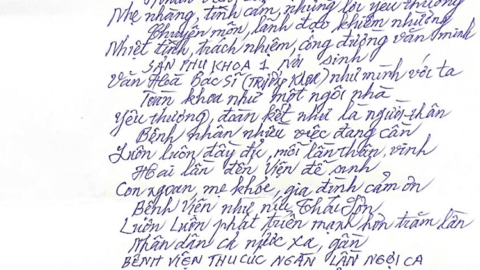 Nhẹ nhàng, tình cảm, những lời yêu thương
Chuyên môn, lãnh đạo khiêm nhường
Nhiệt tình, trách nhiệm, công đường văn minh
SẢN THU KHOA 1 nơi sinh
Văn Hoá Bác Sĩ (Trưởng khoa) như mình với ta
Toàn khoa như một ngôi nhà
Yêu thương, đoàn kết như là người thân
Bệnh nhân nhiều việc đang cần
Luôn luôn đầy đủ, mỗi lần thăm, vinh
Hai lần đến viện để sinh
Con ngoan, mẹ khỏe, gia đình cảm ơn
Bệnh viện như núi Thái Sơn
Luôn Luôn phát triển mạnh hơn trăm lần
Nhân dân cả nước xa, gần
BỆNH VIỆN THU CÚC NGÀN LẦN NGỢI CA